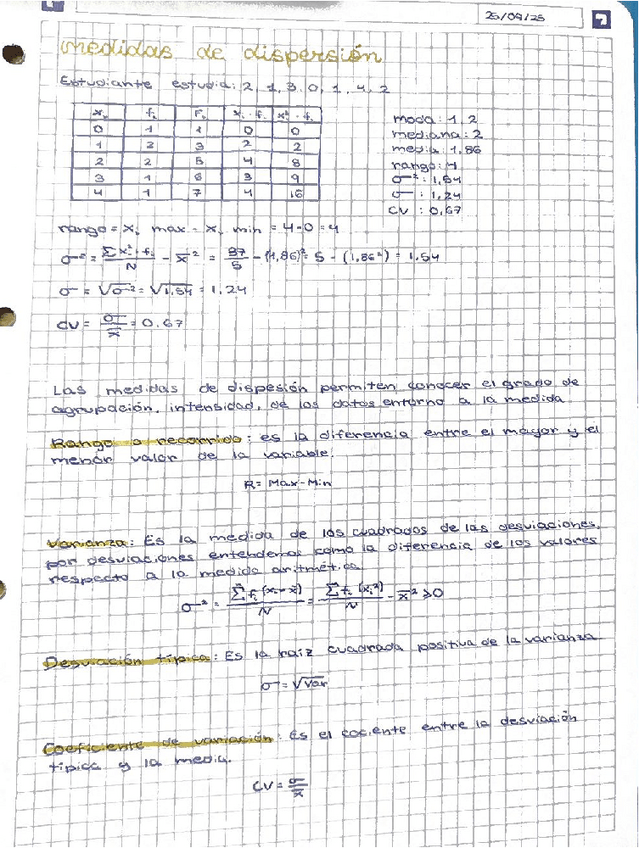 25/09/25
medidas de dispersión
Estudiante estudia: 2, 1, 3, 0, 1, 4, 2
xᵢ fᵢ Fᵢ xᵢ·fᵢ xᵢ²·fᵢ
0 1 1 0 0
1 2 3 2 2
2 2 5 4 8
3 1 6 3 9
4 1 7 4 16
moda: 1, 2
mediana: 2
media: 1,86
rango: 4
σ²: 1,54
σ : 1,24
CV : 0,67
rango = xᵢ max - xᵢ min = 4-0 = 4
σ² = Σ xᵢ²·fᵢ / N - x̄² = 37/5 - (1,86)² = 5 - (1,86²) = 1,54
σ = √σ² = √1,54 = 1,24
CV = σ/x̄ = 0,67
Las medidas de dispesión permiten conocer el grado de
agrupación, intensidad, de los datos entorno a la medida
Rango o recorrido: es la diferencia entre el mayor y el
menor valor de la variable.
R= Max-Min
Varianza: Es la medida de los cuadrados de las desviaciones,
por desviaciones entendemos como la diferencia de los valores
respecto a la medida aritmética
σ² = Σ fᵢ (xᵢ - x̄) / N = Σ fᵢ (xᵢ²) / N - x̄² ≥ 0
Desviación típica: Es la raiz cuadrada positiva de la varianza
σ = √Var
Coeficiente de variación: Es el cociente entre la desviación
típica y la media.
CV = σ/x̄